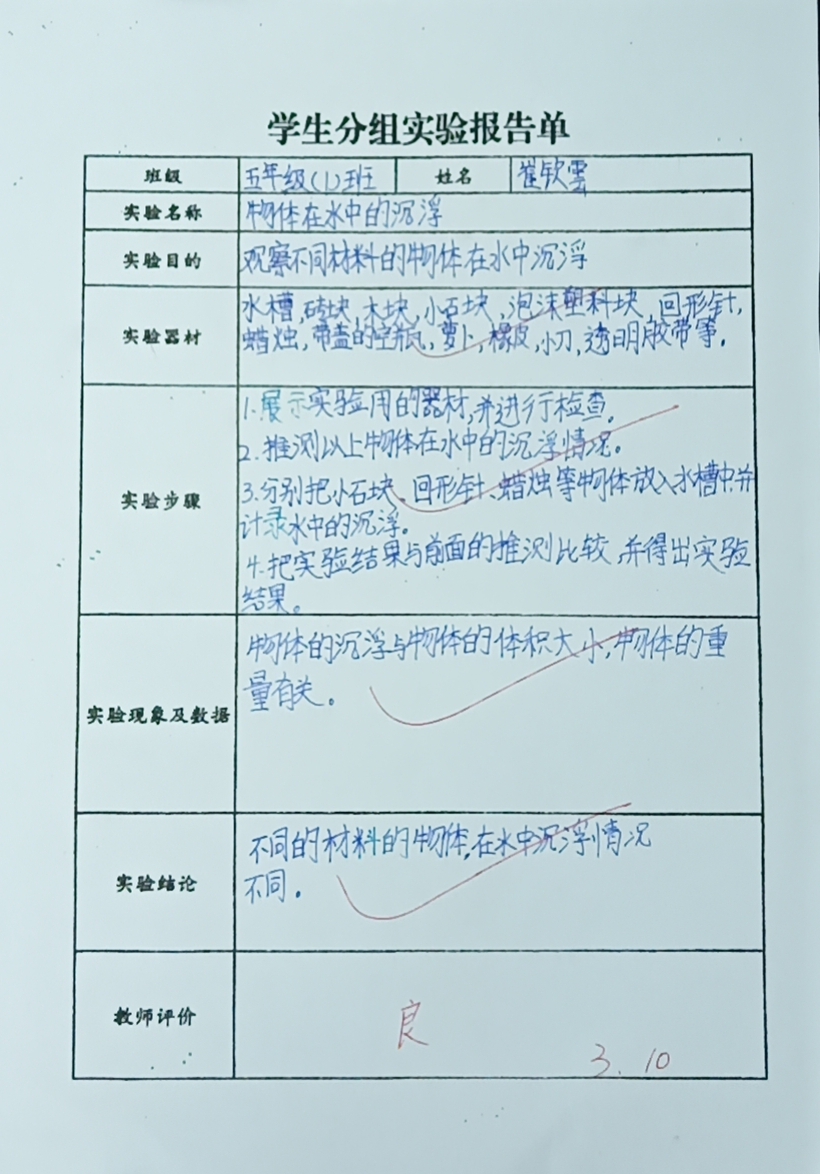 学生分组实验报告单
班级 五年级(1)班 姓名 崔钦雲
实验名称 物体在水中的沉浮
实验目的 观察不同材料的物体在水中沉浮
实验器材
水槽,砖块,木块,小石块,泡沫塑料块,回形针,
蜡烛,带盖的空瓶,萝卜,橡皮,小刀,透明胶带等.
实验步骤
1.展示实验用的器材,并进行检查.
2.推测以上物体在水中的沉浮情况。
3.分别把小石块、回形针、蜡烛等物体放入水槽中,并
计录水中的沉浮。
4.把实验结果与前面的推测比较,并得出实验
结果。
实验现象及数据
物体的沉浮与物体的体积大小,物体的重
量有关。
实验结论
不同的材料的物体,在水中沉浮情况
不同。
教师评价
良
3.10